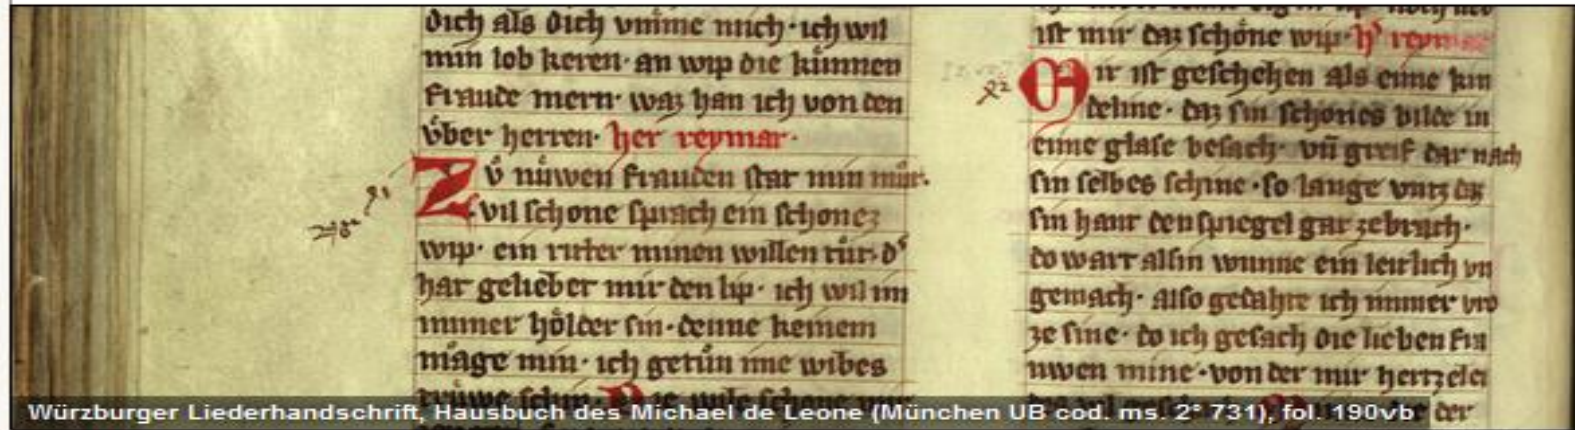 dich als dich vnime mich · ich wil
min lob keren · an wip die ku̍nnen
fraude mern · waz han ich von den
v̊ber herren · her reymar ·
Zv̊ nu̍wen frauden stat min mu̍t ·
vil schone sprach ein schonez
wip · ein ritter minen willen tu̍t · d'
hat geliebet mir den lip · ich wil im
immer hölder sin · denne keinem
mage min · ich getu̍n ime wibes
tru̍we schin · wile schone
ist mir daz schöne wip · h' reymar
Mir ist geschehen als eime kin
deline · daz sin schones bilde in
eime glase besach · vn̄ greif dar nach
sin selbes schine · so lange vntz daz
sin hant den spiegel gar zebrach ·
do wart al sin wunne ein leitlich vn
gemach · also gedahte ich immer vro
ze sine · do ich gesach die lieben fra
uwen mine · von der mir hertzelei
der
Würzburger Liederhandschrift, Hausbuch des Michael de Leone (München UB cod. ms. 2° 731), fol. 190vb